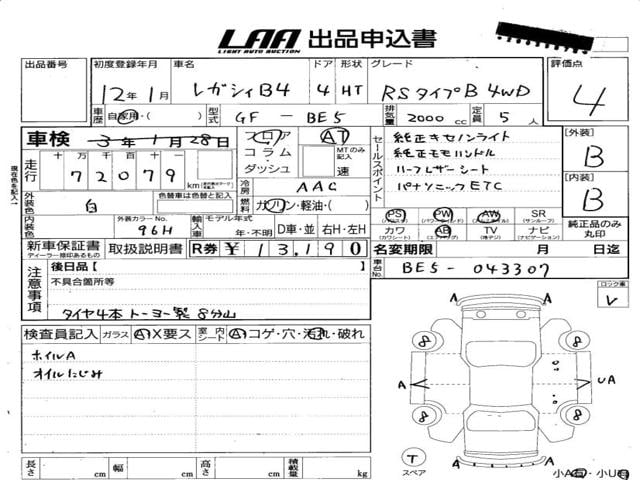 LAA 出品申込書
LIGHT AUTO AUCTION
出品番号
初度登録年月 車名 ドア 形状 グレード 評価点
12年 1月 レガシィB4 4 HT RSタイプB 4WD 4
車歴 自家用・( ) 型式 GF - BE5 排気量 2000 cc 定員 5 人
車検 3年 1月 28日
フロア コラム ダッシュ
AT
MTのみ記入
速
セールスポイント
純正キセノンライト
純正モモハンドル
ハーフレザーシート
パナソニックETC
[外装]
B
[内装]
B
走行 十万 万 千 百 十 一
72079 km
冷房 AAC
燃料 ガソリン・軽油・( )
現在色を記入
外装色 色替車は色替と記入
白
外装カラーNo.
96H
輸入車 モデル年式
年・不明 D車・並 右H・左H
PS PW AW SR
(パワーウィンドウ) (サンルーフ)
カワ AB TV ナビ
(カワシート) (エアバッグ) (地デジ) (ナビゲーション)
純正品のみ丸印
新車保証書 取扱説明書 R券 ¥13,190
ディーラー捺印あるもの
名変期限 月 日迄
注意事項
後日品【 】
不具合箇所等
車台No. BE5-043307
ロック車
レ
タイヤ4本 トーヨー製 8分山
検査員記入 ガラス A X要ス 室内シート A コゲ・穴・汚れ・破れ
ホイルA
オイルにじみ
A
A
8
8
A
UA
8
8
T
スペア
A
小A 小U
長さ cm 幅 cm 高さ cm 積載量 kg